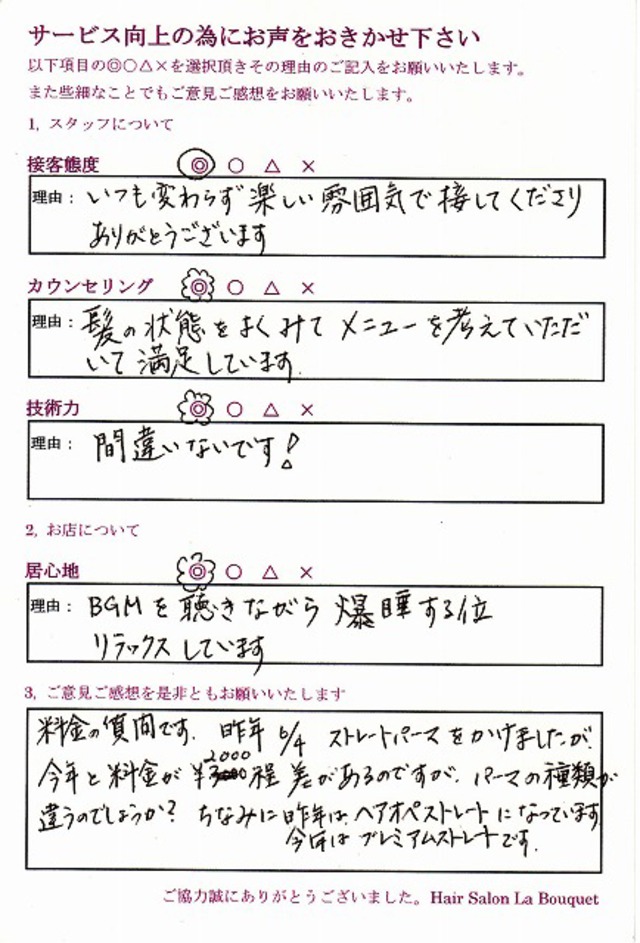 サービス向上の為にお声をおきかせ下さい
以下項目の◎○△×を選択頂きその理由のご記入をお願いいたします。
また些細なことでもご意見ご感想をお願いいたします。
1, スタッフについて
接客態度 ◎ ○ △ ×
理由：いつも変わらず楽しい雰囲気で接してくださり
ありがとうございます
カウンセリング ◎ ○ △ ×
理由：髪の状態をよくみてメニューを考えていただ
いて満足しています.
技術力 ◎ ○ △ ×
理由：間違いないです!
2, お店について
居心地 ◎ ○ △ ×
理由：BGMを聴きながら爆睡する位
リラックスしています
3, ご意見ご感想を是非ともお願いいたします
料金の質問です. 昨年6/4 ストレートパーマをかけましたが.
今年と料金が¥2000程差があるのですが、パーマの種類が
違うのでしょうか? ちなみに昨年は、ヘアオペストレートになっています
今年はプレミアムストレートです.
ご協力誠にありがとうございました。Hair Salon La Bouquet